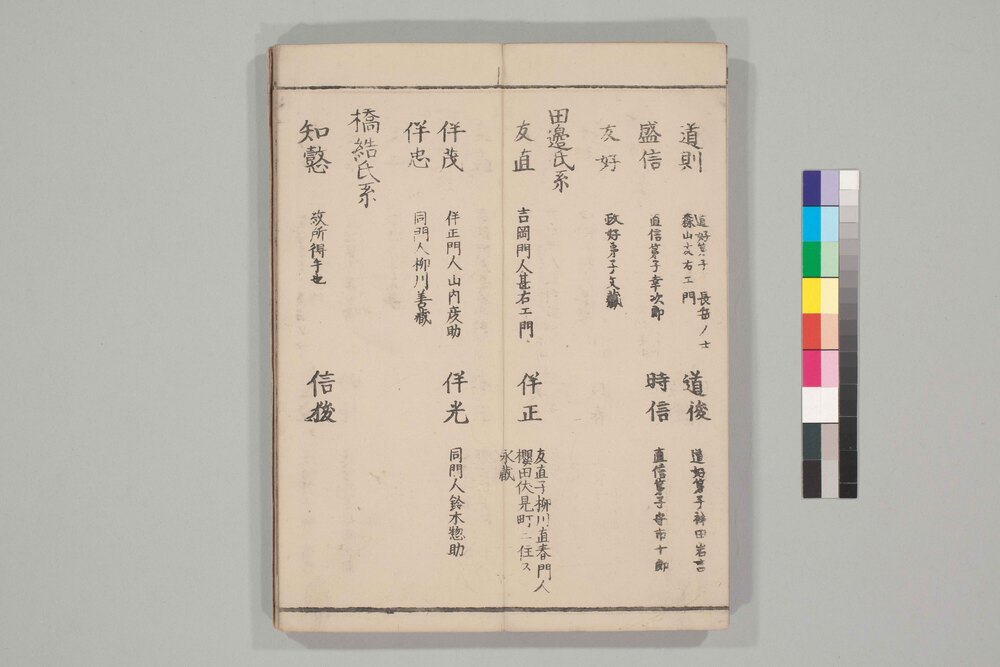 道則
道好弟子 長岳ノ士
森山文右エ門
道俊
道好弟子神田岩吉
盛信
直信弟子幸次郎
時信
直信弟子寺市十郎
友好
政好弟子文藏
田邊氏系
友直
吉岡門人甚右エ門
佯正
友直子柳川直春門人
櫻田伏見町ニ住ス
永藏
佯茂
佯正門人山内彦助
佯光
同門人鈴木惣助
佯忠
同門人柳川善藏
橋結氏系
知
信